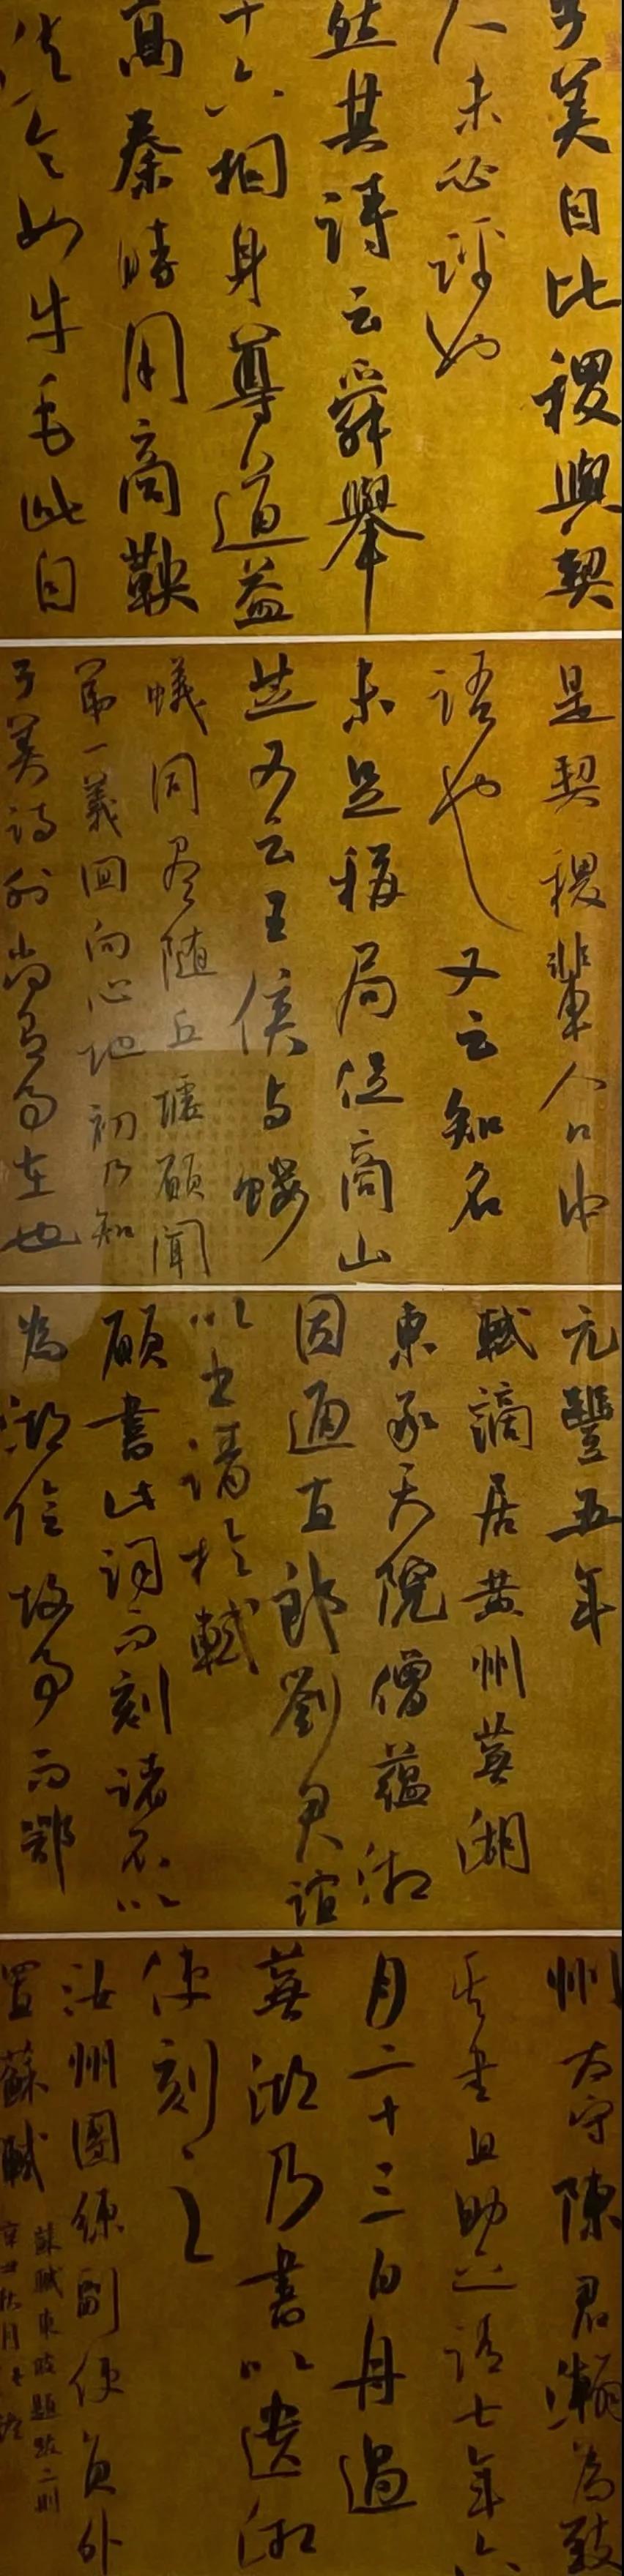 子美自比稷與契
人未必許也
然其詩云舜舉
十六相身尊道益
高秦時用商鞅
法令如牛毛此自
是契稷輩人口中
語也又云知名
未足稱局促商山
芝又云王侯與螻
蟻同盡隨丘墟願聞
第一義回向心地初乃知
子美詩外尚有事在也
元豐五年
軾謫居黃州蕪湖
東承天院僧蘊湘
因通直郎劉君誼
以書請於軾
願書此詞而刻諸石以
為湖陰故事而鄂
州太守陳君瀚為致
其書且助之請七年六
月二十三日舟過
蕪湖乃書以遺湘
使刻之
汝州團練副使員外
置蘇軾
蘇軾東坡題跋二則